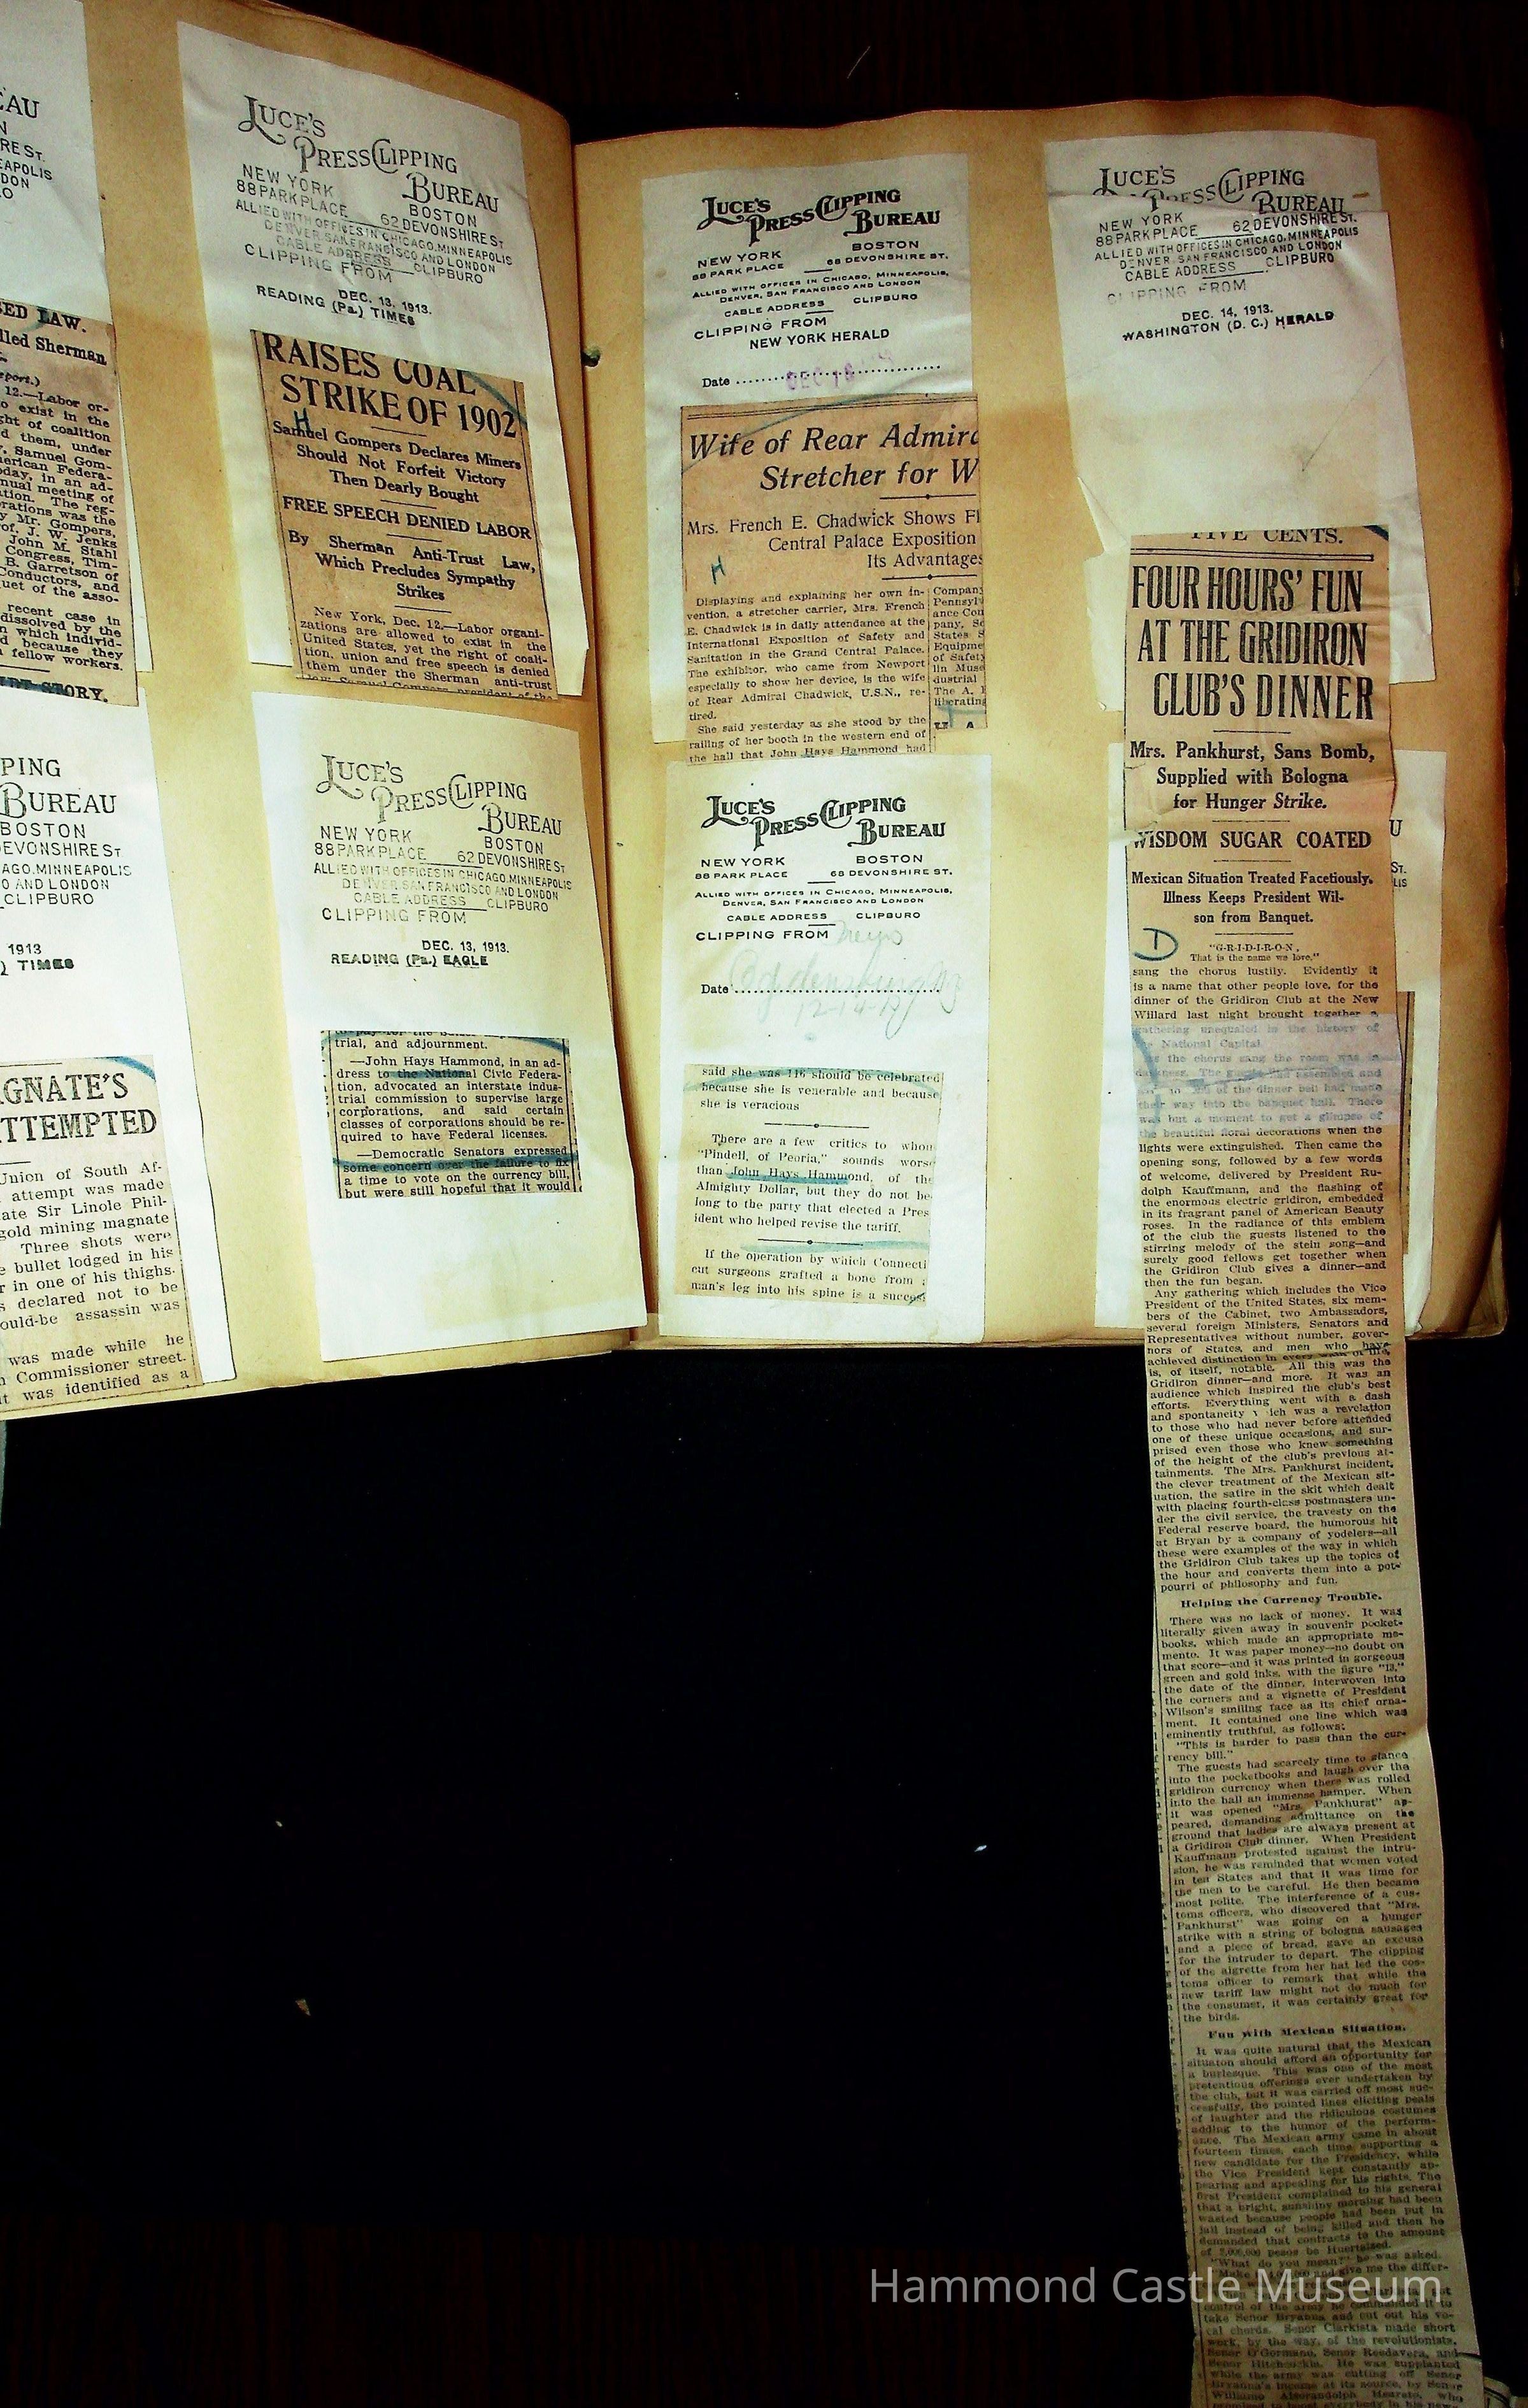 EAU
RE ST.
EAPOLIS
DON
SED LAW.
lled Sherman
12.—Labor or-
o exist in the
ght of coalition
d them, under
, Samuel Gom-
merican Federa-
oday, in an ad-
nual meeting of
ation. The reg-
erations was the
y Mr. Gompers,
rof. J. W. Jenks
John M. Stahl
Congress, Tim-
B. Garretson of
Conductors, and
uet of the asso-
recent case in
dissolved by the
n which individ-
d because they
fellow workers.
STORY.
PING
BUREAU
BOSTON
EVONSHIRE ST
AGO. MINNEAPOLIS
O AND LONDON
CLIPBURO
1913
) TIMES
GNATE'S
TTEMPTED
Union of South Af-
attempt was made
ate Sir Linole Phil-
gold mining magnate
Three shots were
e bullet lodged in his
r in one of his thighs.
s declared not to be
ould-be assassin was
was made while he
n Commissioner street.
it was identified as a
LUCE'S
PRESS CLIPPING
BUREAU
NEW YORK BOSTON
88 PARK PLACE 62 DEVONSHIRE ST
ALLIED WITH OFFICES IN CHICAGO. MINNEAPOLIS
DENVER SAN FRANCISCO AND LONDON
CABLE ADDRESS CLIPBURO
CLIPPING FROM
DEC. 13, 1913.
READING (Pa.) TIMES
RAISES COAL
STRIKE OF 1902
H
Samuel Gompers Declares Miners
Should Not Forfeit Victory
Then Dearly Bought
FREE SPEECH DENIED LABOR
By Sherman Anti-Trust Law,
Which Precludes Sympathy
Strikes
New York, Dec. 12.—Labor organi-
zations are allowed to exist in the
United States, yet the right of coali-
tion, union and free speech is denied
them under the Sherman anti-trust
law, Samuel Gompers, president of the
LUCE'S
PRESS CLIPPING
BUREAU
NEW YORK BOSTON
88 PARK PLACE 62 DEVONSHIRE ST
ALLIED WITH OFFICES IN CHICAGO. MINNEAPOLIS
DENVER SAN FRANCISCO AND LONDON
CABLE ADDRESS CLIPBURO
CLIPPING FROM
DEC. 13, 1913.
READING (Pa.) EAGLE
trial, and adjournment.
—John Hays Hammond, in an ad-
dress to the National Civic Federa-
tion, advocated an interstate indus-
trial commission to supervise large
corporations, and said certain
classes of corporations should be re-
quired to have Federal licenses.
—Democratic Senators expressed
some concern over the failure to fix
a time to vote on the currency bill,
but were still hopeful that it would
LUCE'S
PRESS CLIPPING
BUREAU
NEW YORK BOSTON
88 PARK PLACE 68 DEVONSHIRE ST.
ALLIED WITH OFFICES IN CHICAGO, MINNEAPOLIS,
DENVER, SAN FRANCISCO AND LONDON
CABLE ADDRESS CLIPBURO
CLIPPING FROM
NEW YORK HERALD
Date DEC
Wife of Rear Admira
Stretcher for W
Mrs. French E. Chadwick Shows Fl
Central Palace Exposition
Its Advantages
H
Displaying and explaining her own in-
vention, a stretcher carrier, Mrs. French
E. Chadwick is in daily attendance at the
International Exposition of Safety and
Sanitation in the Grand Central Palace.
The exhibitor, who came from Newport
especially to show her device, is the wife
of Rear Admiral Chadwick, U.S.N., re-
tired.
She said yesterday as she stood by the
railing of her booth in the western end of
the hall that John Hays Hammond had
Company
Pennsylv
ance Con
pany, Se
States S
Equipme
of Safety
lin Muse
dustrial
The A.
liberating
LUCE'S
PRESS CLIPPING
BUREAU
NEW YORK BOSTON
88 PARK PLACE 68 DEVONSHIRE ST.
ALLIED WITH OFFICES IN CHICAGO, MINNEAPOLIS,
DENVER, SAN FRANCISCO AND LONDON
CABLE ADDRESS CLIPBURO
CLIPPING FROM News
Date
said she was 116 should be celebrated
because she is venerable and because
she is veracious
There are a few critics to whom
"Pindell, of Peoria," sounds worse
than John Hays Hammond, of the
Almighty Dollar, but they do not be-
long to the party that elected a Pres
ident who helped revise the tariff.
If the operation by which Connecti
cut surgeons grafted a bone from
man's leg into his spine is a success
LUCE'S
PRESS CLIPPING
BUREAU
NEW YORK
88 PARK PLACE 62 DEVONSHIRE ST.
ALLIED WITH OFFICES IN CHICAGO. MINNEAPOLIS
DENVER, SAN FRANCISCO AND LONDON
CABLE ADDRESS CLIPBURO
CLIPPING FROM
DEC. 14, 1913.
WASHINGTON (D. C.) HERALD
FIVE CENTS.
FOUR HOURS' FUN
AT THE GRIDIRON
CLUB'S DINNER
Mrs. Pankhurst, Sans Bomb,
Supplied with Bologna
for Hunger Strike.
WISDOM SUGAR COATED
Mexican Situation Treated Facetiously.
Illness Keeps President Wil-
son from Banquet.
D
"G-R-I-D-I-R-O-N,
That is the name we love,"
sang the chorus lustily. Evidently it
is a name that other people love, for the
dinner of the Gridiron Club at the New
Willard last night brought together a
gathering unequaled in the history of
National Capital.
the chorus sang the room was in
darkness. The guests had assembled and
of the dinner bell had made
their way into the banquet hall. There
was but a moment to get a glimpse of
the beautiful floral decorations when the
lights were extinguished. Then came the
opening song, followed by a few words
of welcome, delivered by President Ru-
dolph Kauffmann, and the flashing of
the enormous electric gridiron, embedded
in its fragrant panel of American Beauty
roses. In the radiance of this emblem
of the club the guests listened to the
stirring melody of the stein song—and
surely good fellows get together when
the Gridiron Club gives a dinner—and
then the fun began.
Any gathering which includes the Vice
President of the United States, six mem-
bers of the Cabinet, two Ambassadors,
several foreign Ministers, Senators and
Representatives without number, gover-
nors of States, and men who have
achieved distinction in every walk of life,
is, of itself, notable. All this was the
Gridiron dinner—and more. It was an
audience which inspired the club's best
efforts. Everything went with a dash
and spontaneity which was a revelation
to those who had never before attended
one of these unique occasions, and sur-
prised even those who knew something
of the height of the club's previous at-
tainments. The Mrs. Pankhurst incident,
the clever treatment of the Mexican sit-
uation, the satire in the skit which dealt
with placing fourth-class postmasters un-
der the civil service, the travesty on the
Federal reserve board, the humorous hit
at Bryan by a company of yodelers—all
these were examples of the way in which
the Gridiron Club takes up the topics of
the hour and converts them into a pot-
pourri of philosophy and fun.
Helping the Currency Trouble.
There was no lack of money. It was
literally given away in souvenir pocket-
books, which made an appropriate me-
mento. It was paper money—no doubt on
that score—and it was printed in gorgeous
green and gold inks, with the figure "13,"
the date of the dinner, interwoven into
the corners and a vignette of President
Wilson's smiling face as its chief orna-
ment. It contained one line which was
eminently truthful, as follows:
"This is harder to pass than the cur-
rency bill."
The guests had scarcely time to glance
into the pocketbooks and laugh over the
gridiron currency when there was rolled
into the hall an immense hamper. When
it was opened "Mrs. Pankhurst" ap-
peared, demanding admittance on the
ground that ladies are always present at
a Gridiron Club dinner. When President
Kauffmann protested against the intru-
sion, he was reminded that women voted
in ten States and that it was time for
the men to be careful. He then became
most polite. The interference of a cus-
toms officers, who discovered that "Mrs.
Pankhurst" was going on a hunger
strike with a string of bologna sausages
and a piece of bread, gave an excuse
for the intruder to depart. The clipping
of the aigrette from her hat led the cus-
toms officer to remark that while the
new tariff law might not do much for
the consumer, it was certainly great for
the birds.
Fun with Mexican Situation.
It was quite natural that the Mexican
situaton should afford an opportunity for
a burlesque. This was one of the most
pretentious offerings ever undertaken by
the club, but it was carried off most suc-
cessfully, the pointed lines eliciting peals
of laughter and the ridiculous costumes
adding to the humor of the perform-
ance. The Mexican army came in about
fourteen times, each time supporting a
new candidate for the Presidency, while
the Vice President kept constantly ap-
pearing and appealing for his rights. The
first President complained to his general
that a bright, sunshiny morning had been
wasted because people had been put in
jail instead of being killed and then he
demanded that contracts to the amount
of 2,000,000 pesos be Huertaised.
"What do you mean?" he was asked.
give me the differ-
control of the army he commanded it to
take Senor Bryanna and cut out his vo-
cal chords. Senor Clarkista made short
work, by the way, of the revolutionists,
Senor O'Gormano, Senor Reedavera, and
Senor Hitchcockin. He was supplanted
while the army was cutting off Senor
Bryanna's income at its source, by Senor
Hammond Castle Museum